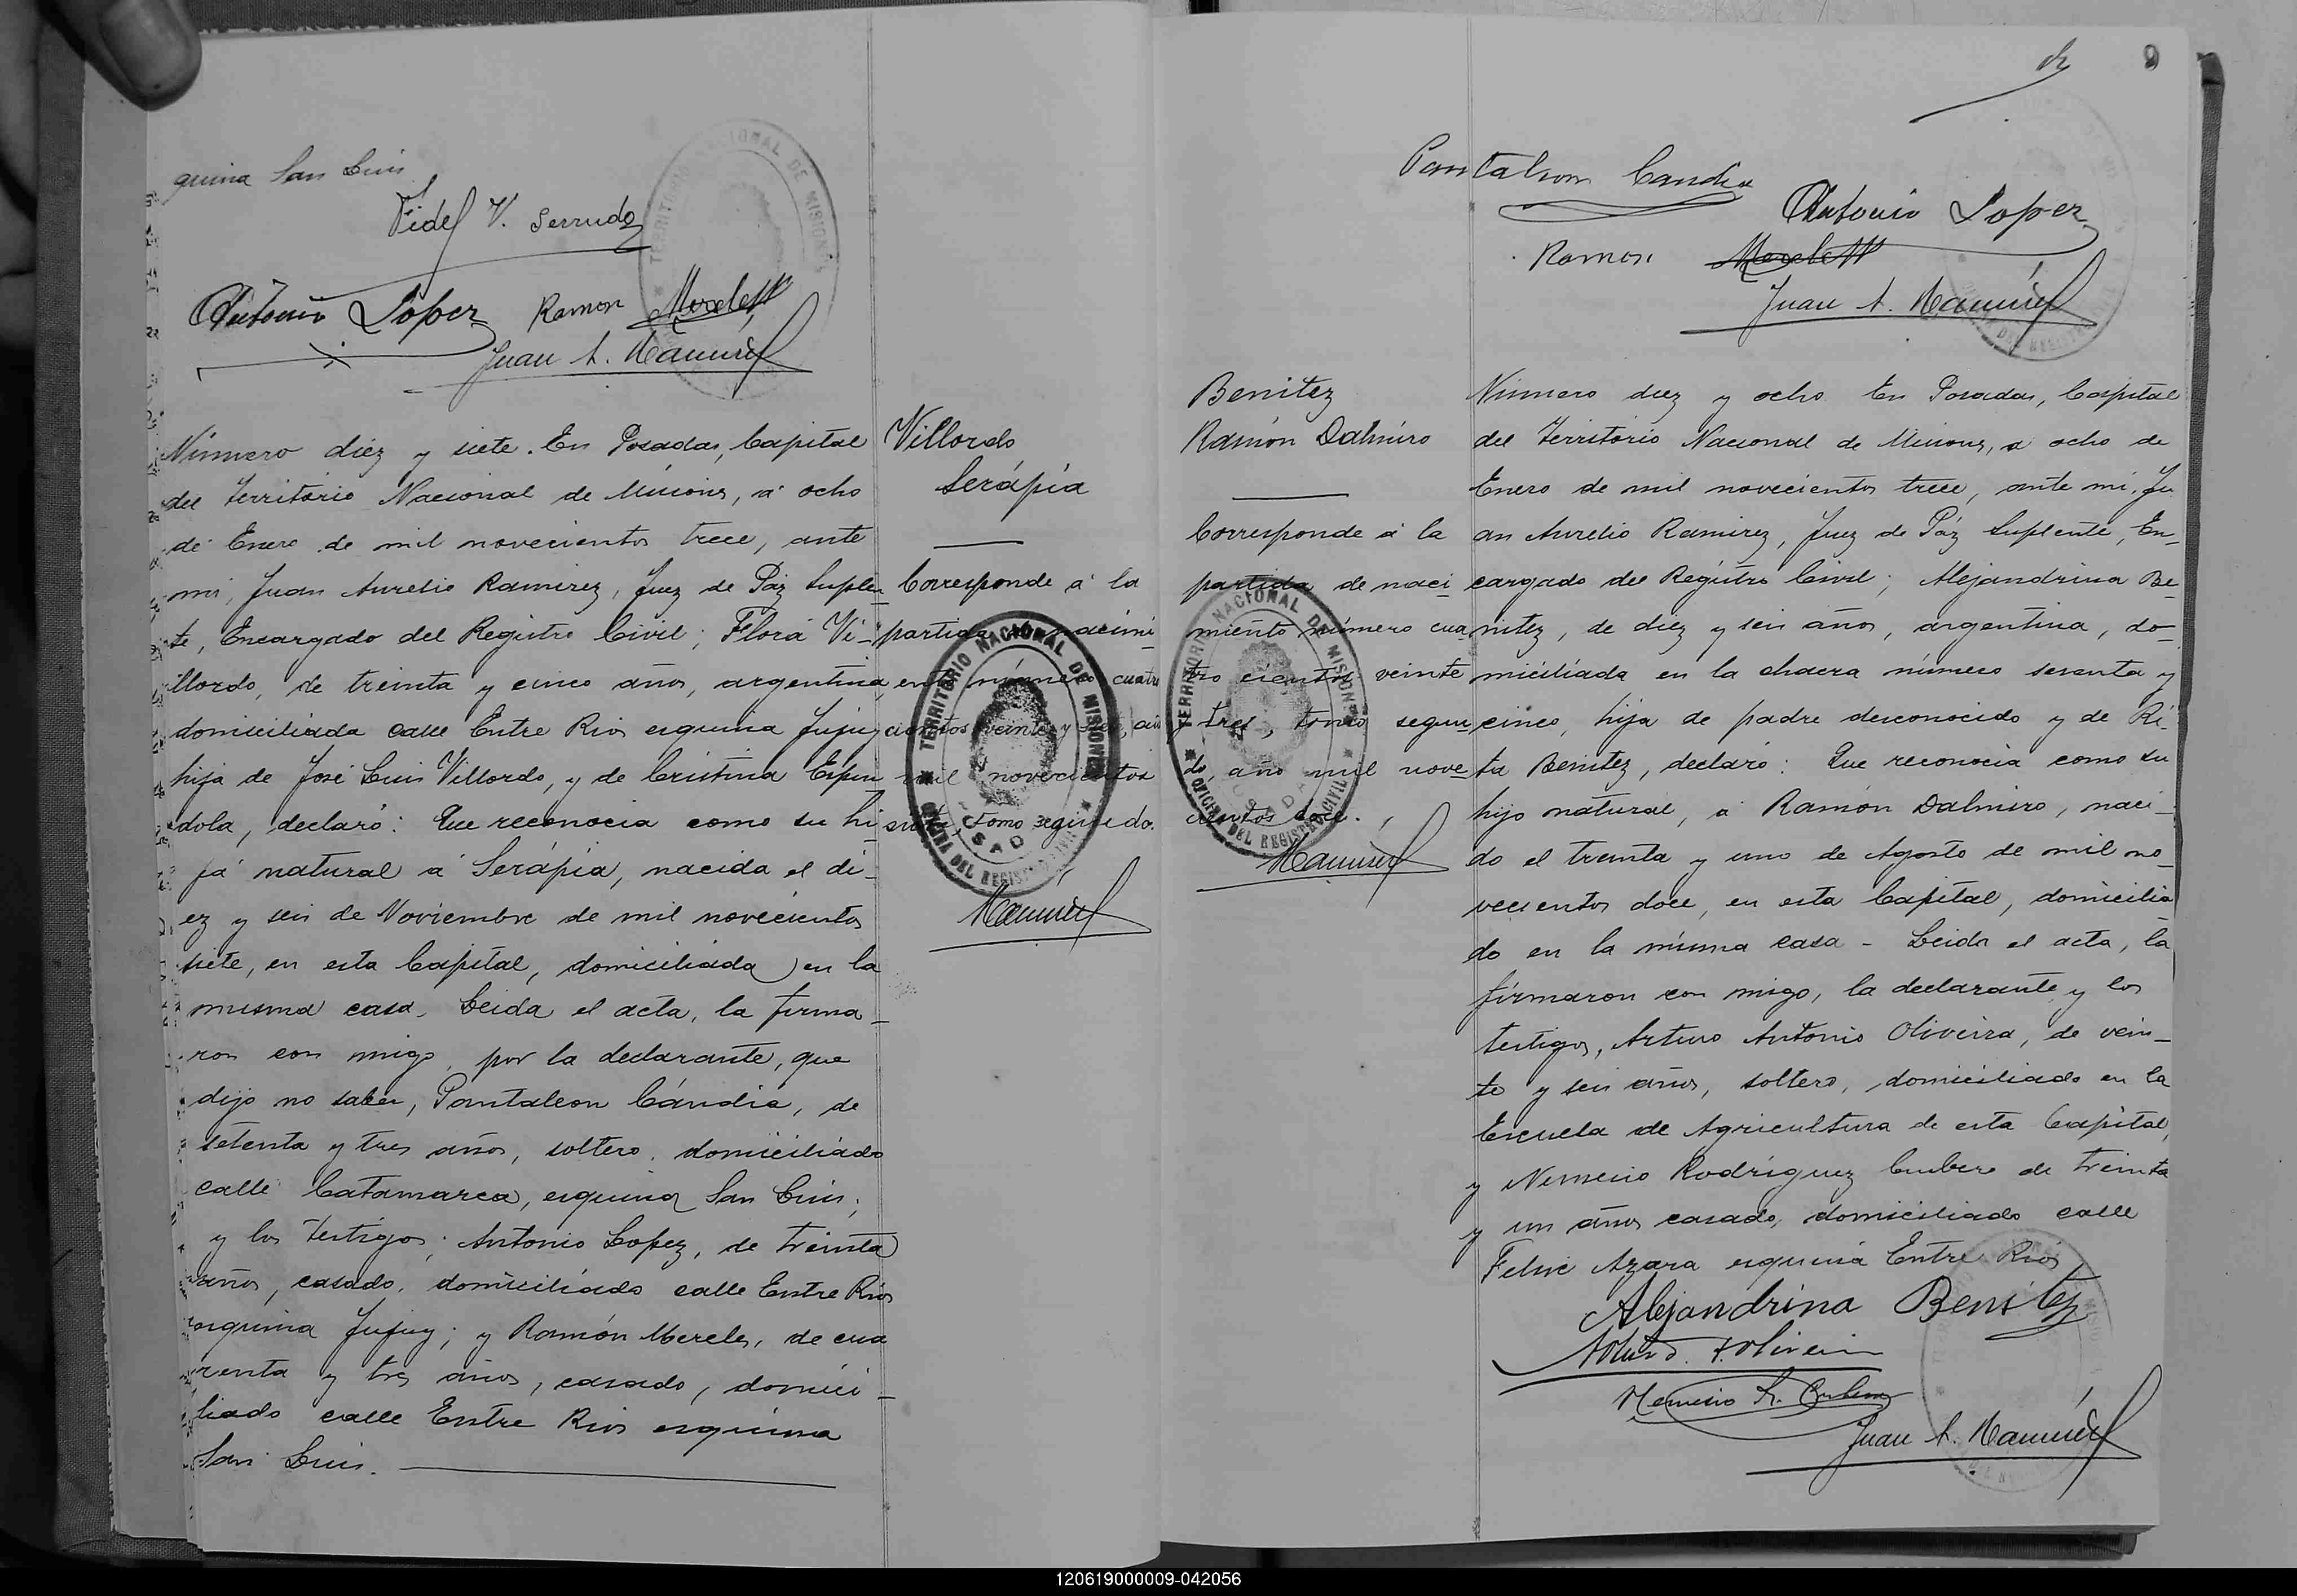 quina San Luis
Fidel V. Serrudo
Antonio Lopez Ramon Mereles
Juan A. Ramirez
Número diez y siete. En Posadas, Capital
del Territorio Nacional de Misiones, á ocho
de Enero de mil novecientos trece, ante
mi, Juan Aurelio Ramirez, Juez de Paz Suplen-
te, Encargado del Registro Civil; Flora Vi-
llordo, de treinta y cinco años, argentina,
domiciliada calle Entre Rios esquina Jujuy
hija de José Luis Villordo, y de Cristina Espin
dola, declaró: Que reconocia como su hi-
ja natural á Serápia, nacida el di-
ez y seis de Noviembre de mil novecientos
siete, en esta Capital, domiciliada en la
misma casa. Leida el acta, la firma-
ron con migo, por la declarante, que
dijo no saber, Pantaleon Cándia, de
setenta y tres años, soltero, domiciliado
calle Catamarca, esquina San Luis;
y los testigos: Antonio Lopez, de treinta
años, casado, domiciliado calle Entre Rios
esquina Jujuy; y Ramón Mereles, de cua
renta y tres años, casado, domici-
liado calle Entre Rios esquina
San Luis.
Villordo
Serápia
Corresponde á la
partida de nacimi
ento número cuatro
cientos veinte y seis, año
mil novecientos
siete, tomo segundo.
Ramirez
TERRITORIO NACIONAL DE MISIONES
OFICINA DEL REGISTRO CIVIL
POSADAS
9
Pantalion Candia
Antonio Lopez
Ramon Mereles
Juan A. Ramirez
Benitez
Ramón Dalmiro
Corresponde á la
partida de naci-
miento número cua-
tro cientos veinte
y tres, tomo segun-
do, año mil nove-
cientos doce.
Ramirez
TERRITORIO NACIONAL DE MISIONES
OFICINA DEL REGISTRO CIVIL
POSADAS
Número diez y ocho En Posadas, Capital
del Territorio Nacional de Misiones, a ocho de
Enero de mil novecientos trece, ante mi, Ju
an Aurelio Ramirez, Juez de Páz Suplente, En-
cargado del Registro Civil; Alejandrina Be-
nitez, de diez y seis años, argentina, do-
miciliada en la chacra número sesenta y
cinco, hija de padre desconocido y de Ri-
ta Benitez, declaró: Que reconocia como su
hijo natural, á Ramón Dalmiro, naci-
do el treinta y uno de Agosto de mil no-
vecientos doce, en esta Capital, domicilia
do en la misma casa - Leida el acta, la
firmaron con migo, la declarante y los
testigos, Arturo Antonio Oliveira, de vein-
te y seis años, soltero, domiciliado en la
Escuela de Agricultura de esta Capital,
y Nemecio Rodríguez Cubero de treinta
y un años casado, domiciliado calle
Felix Azara esquina Entre Rios
Alejandrina Benitez
Arturo A. Oliveira
Nemecio R. Cubero
Juan A. Ramirez
120619000009-042056